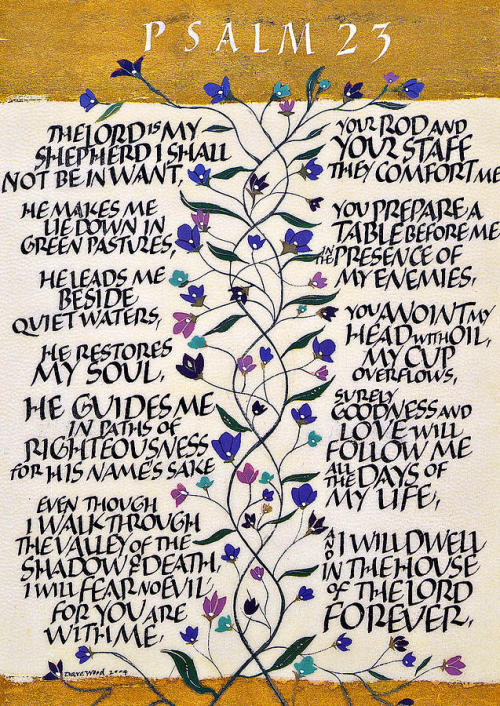 PSALM 23
THE LORD IS MY
SHEPHERD I SHALL
NOT BE IN WANT,
HE MAKES ME
LIE DOWN IN
GREEN PASTURES,
HE LEADS ME
BESIDE
QUIET WATERS,
HE RESTORES
MY SOUL,
HE GUIDES ME
IN PATHS OF
RIGHTEOUSNESS
FOR HIS NAME'S SAKE
EVEN THOUGH
I WALK THROUGH
THE VALLEY OF THE
SHADOW OF DEATH,
I WILL FEAR NO EVIL,
FOR YOU ARE
WITH ME,
YOUR ROD AND
YOUR STAFF
THEY COMFORT ME
YOU PREPARE A
TABLE BEFORE ME
IN THE PRESENCE OF
MY ENEMIES,
YOU ANOINT MY
HEAD WITH OIL,
MY CUP
OVERFLOWS,
SURELY
GOODNESS AND
LOVE WILL
FOLLOW ME
ALL THE DAYS OF
MY LIFE,
AND I WILL DWELL
IN THE HOUSE
OF THE LORD
FOREVER,
Dave Wood 2009